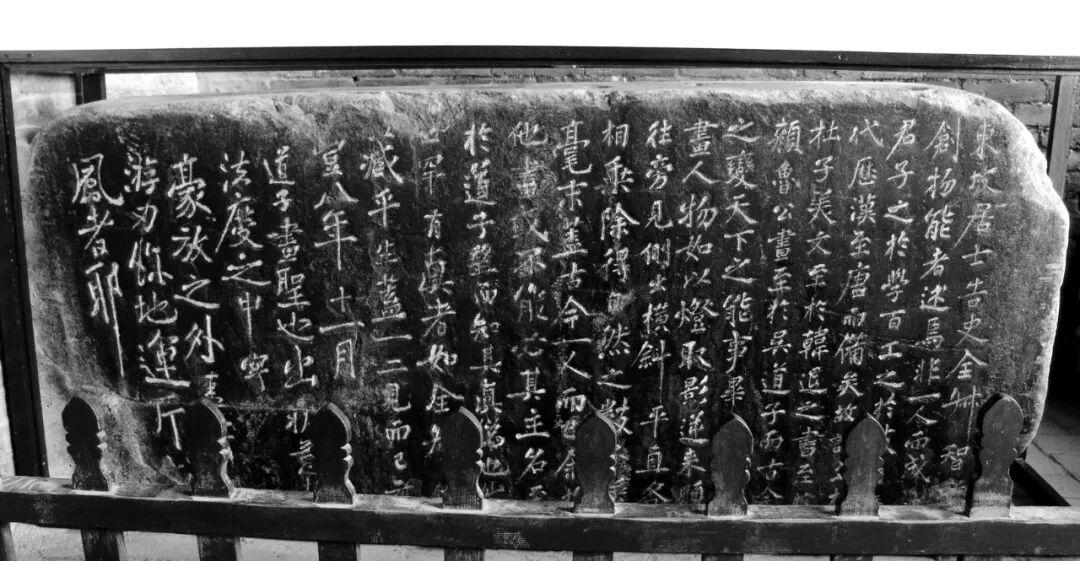 東坡居士告史全叔智
創物能者述焉非一人而成
君子之於學百工之於
代歷漢至唐而備矣故詩
杜子美文至於韓退之書至
顏魯公畫至於吳道子而古今
之變天下之能事畢
畫人物如以燈取影逆來順
往旁見側出橫斜平直各
相乘除得自然之數
毫末盖古今一人而已余
他畫或不能必其主名至
於道子望而知其真偽也
罕有真者如全叔
藏平生盖一二見而已
豐八年十一月
道子畫聖也出新意
法度之中寄
豪放之外
游刃餘地運斤
風者耶